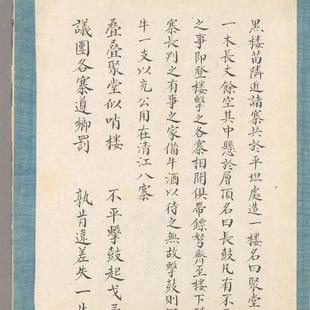 黑楼苗隣近諸寨共於平坦處造一楼名曰聚堂
一木長丈餘空其中懸於層頂名曰長鼓凡有不
之事即登楼擊之各寨相聞俱帶鏢弩齊至楼下
寨長判之有事之家偹牛酒以待之無故擊鼓則
牛一支以充公用在清江八寨
叠叠聚堂似哨楼 不平擊鼓起戈
議團各寨遵鄉罰 孰肯違差失一